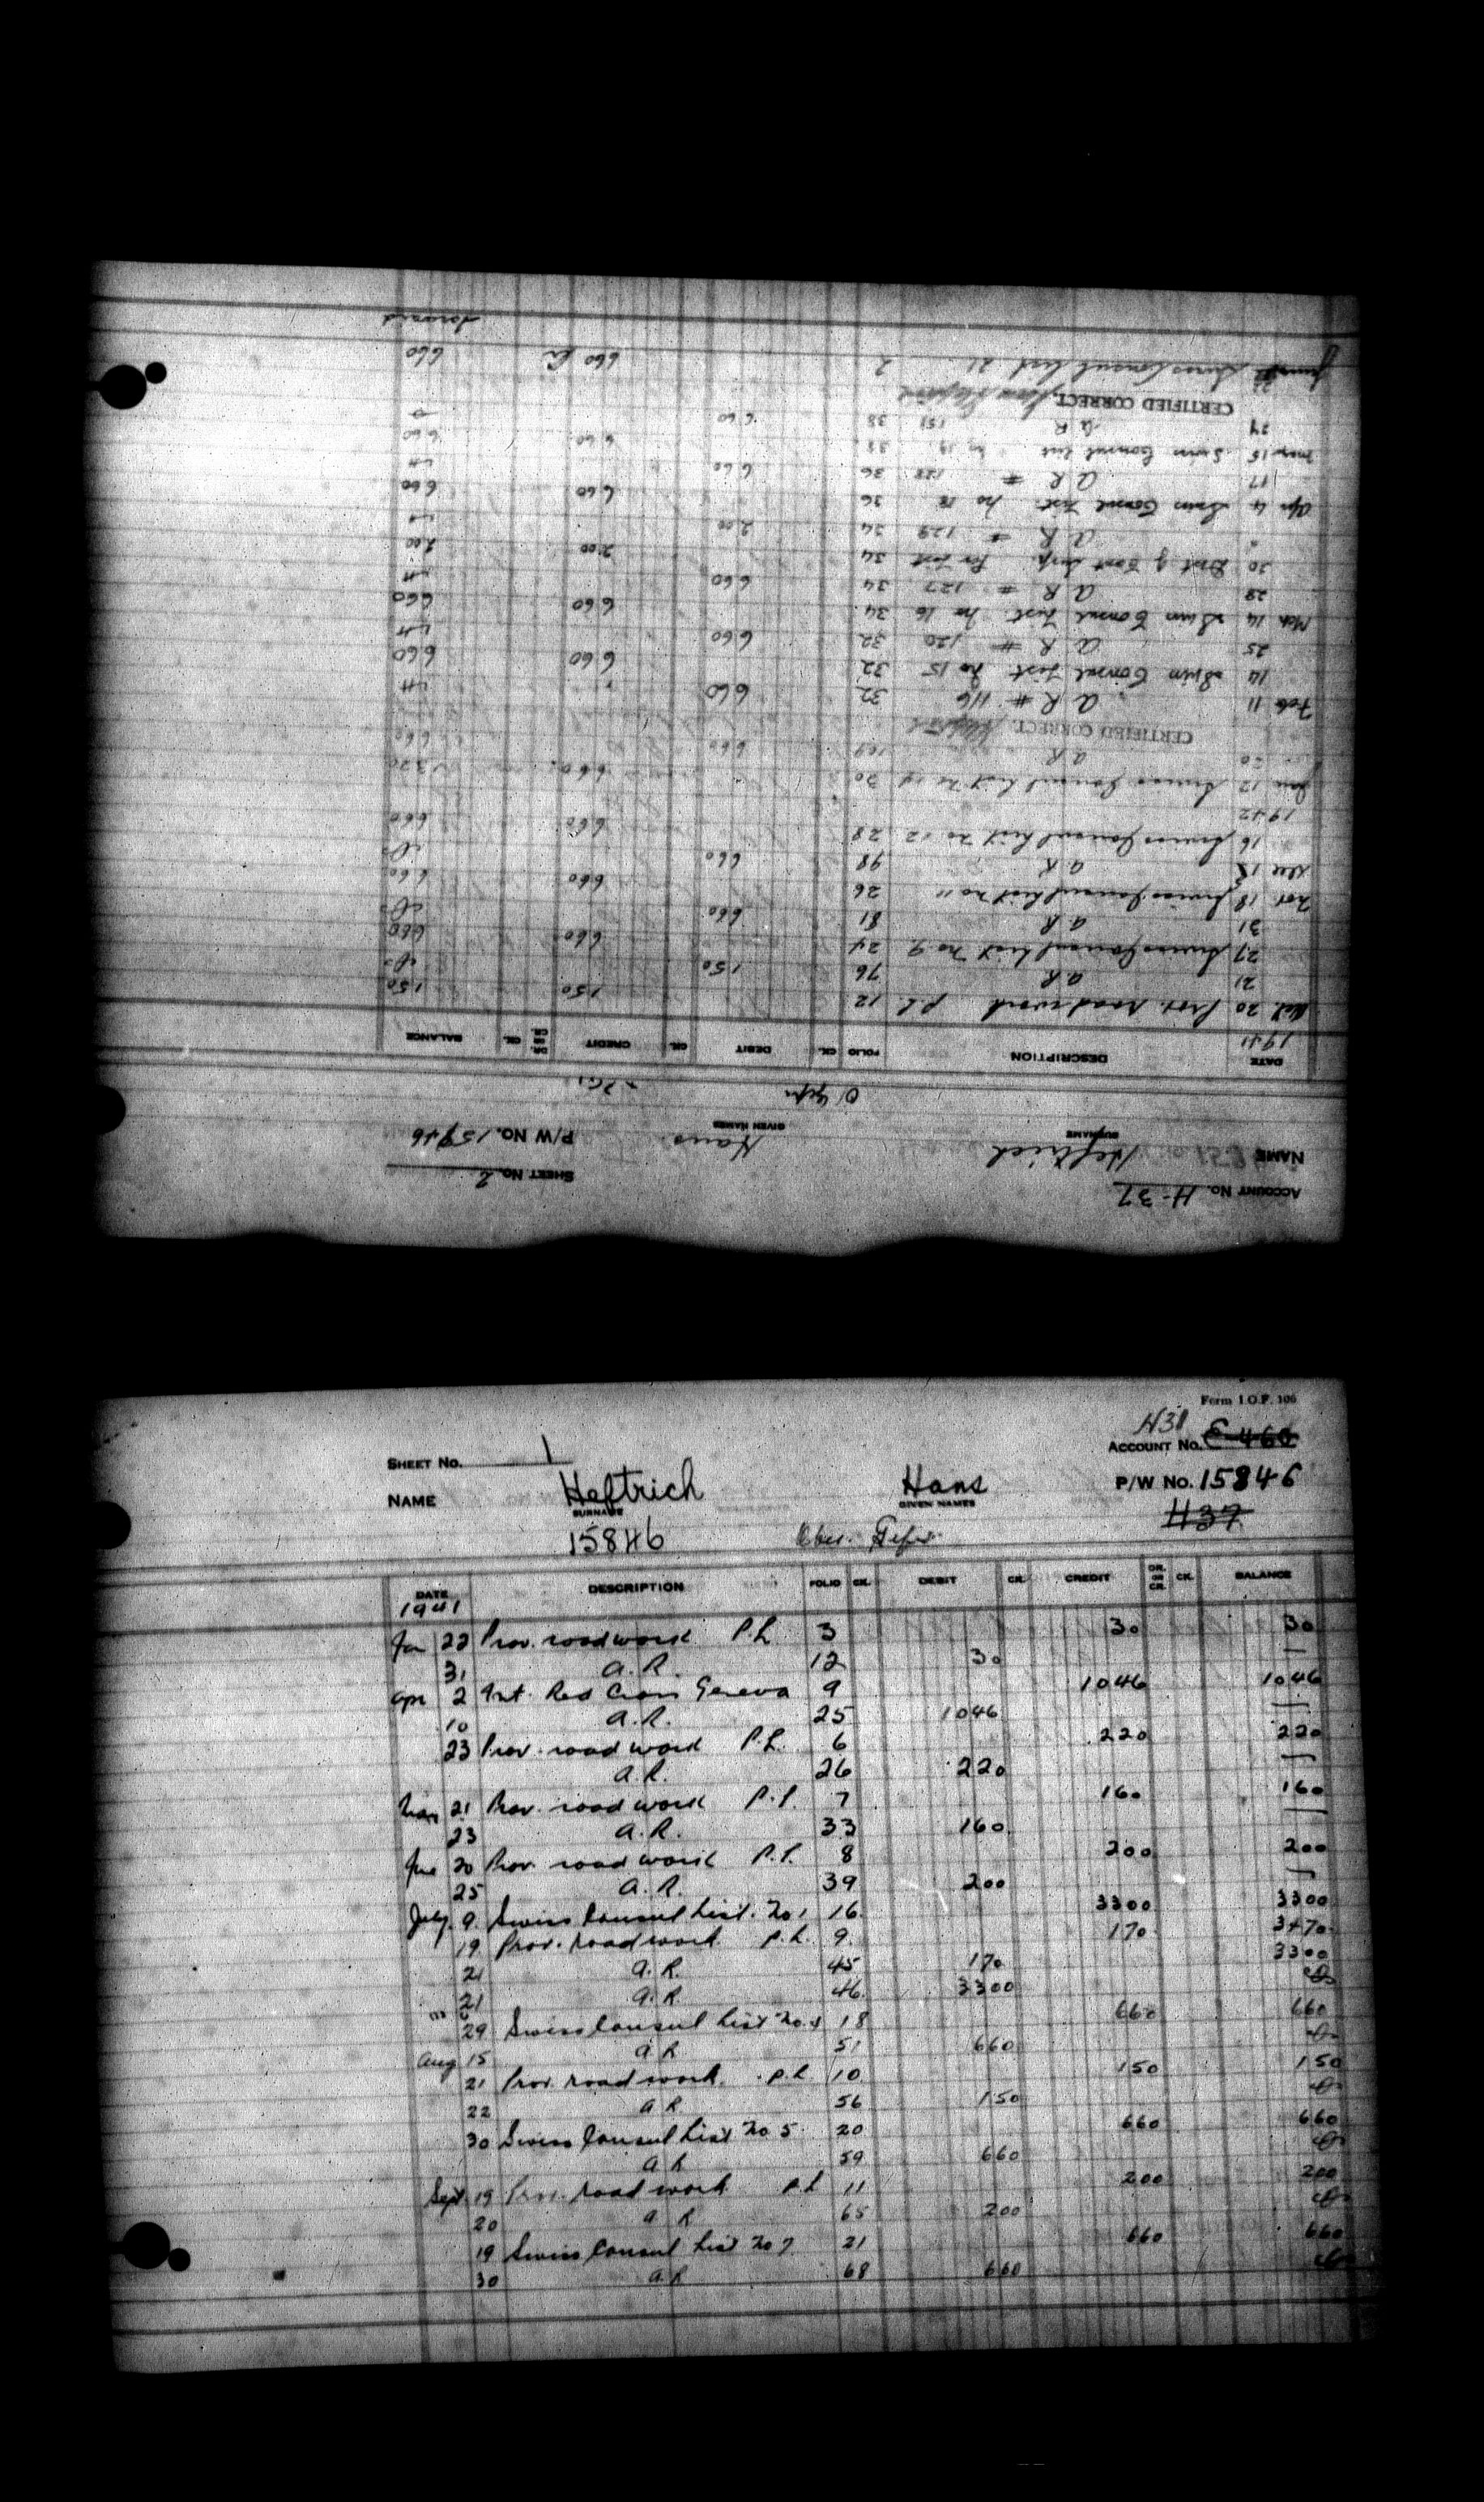 ACCOUNT No. H-37
SHEET No. 2
NAME Heftrich Hans P/W No. 15846
SURNAME GIVEN NAMES
O/Gefr
DATE DESCRIPTION FOLIO CK. DEBIT CK. CREDIT DR. OR CR. CK. BALANCE
1941
Oct. 20 Prov. road work P.L. 12 150 150
21 a R 76 150
27 Swiss Consul List no 9 24 660 660
31 a R 81 660
Nov 18 Swiss Consul List no 11 26 660 660
Dec a R 98 660
16 Swiss Consul List no 12 28 660 660
1942
Jan 12 Swiss Consul List no 14 30 660 1320
20 a R 109 660 660
CERTIFIED CORRECT
Feb 11 a R # 116 32 660
14 Swiss Consul List no 15 32 660 660
25 a R # 120 32 660
Mch 14 Swiss Consul List no 16 34 660 660
28 a R # 127 34 660
30 34 200 200
" a R # 129 34 200
Apr 4 Swiss Consul List no 18 36 660 660
17 a R # 36 660
May 15 Swiss Consul List no 19 38 660 660
29 a R 151 38 660
CERTIFIED CORRECT
June Swiss Consul List 21 2 660 Cr 660
forward
Form I.O.F. 106
H38
SHEET No. 1 ACCOUNT No.
NAME Heftrich Hans P/W No. 15846
SURNAME GIVEN NAMES H37
15846 Ober. Gefr.
DATE DESCRIPTION FOLIO CK. DEBIT CK. CREDIT DR. OR CR. CK. BALANCE
1941
Jan 22 Prov. road work P.L. 3 30 30
31 a.R. 12 30 —
Apr 2 Int. Red Cross Geneva 9 1046 1046
10 a.R. 25 1046 —
23 Prov. road work P.L. 6 220 220
a.R. 26 220 —
21 Prov. road work P.L. 7 160 160
23 a.R. 33 160 —
June 20 Prov. road work P.L. 8 200 200
25 a.R. 39 200 —
July 9 Swiss Consul List. No 1 16 3300 3300
19 Prov. road work P.L. 9 170 3470
21 a.R. 45 170 3300
21 a.R. 46 3300
29 Swiss Consul List No. 4 18 660 660
Aug 15 a R 51 660
21 Prov. road work. P.L 10 150 150
22 a R 56 150
30 Swiss Consul List No 5 20 660 660
a R 59 660
Sept. 19 Prov. road work P.L 11 200 200
20 a R 65 200
19 Swiss Consul List No 7 21 660 660
30 a R 68 660